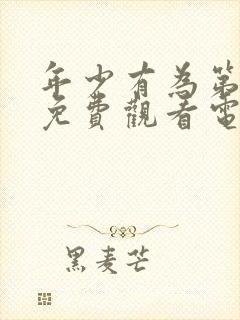 年少有為第
免費觀看電
黑麦芒